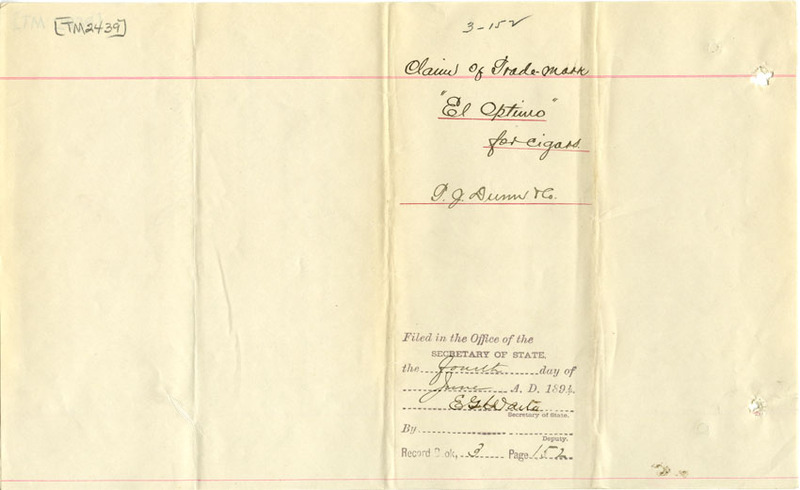 [TM2439]
3-152
Claim of Trade-mark
"El Optimo"
for cigars.
P. J. Dunn & Co.
Filed in the Office of the
SECRETARY OF STATE,
the fourth day of
June A. D. 1894.
E G Waite
Secretary of State.
By
Deputy.
Record Book, 3 Page 152